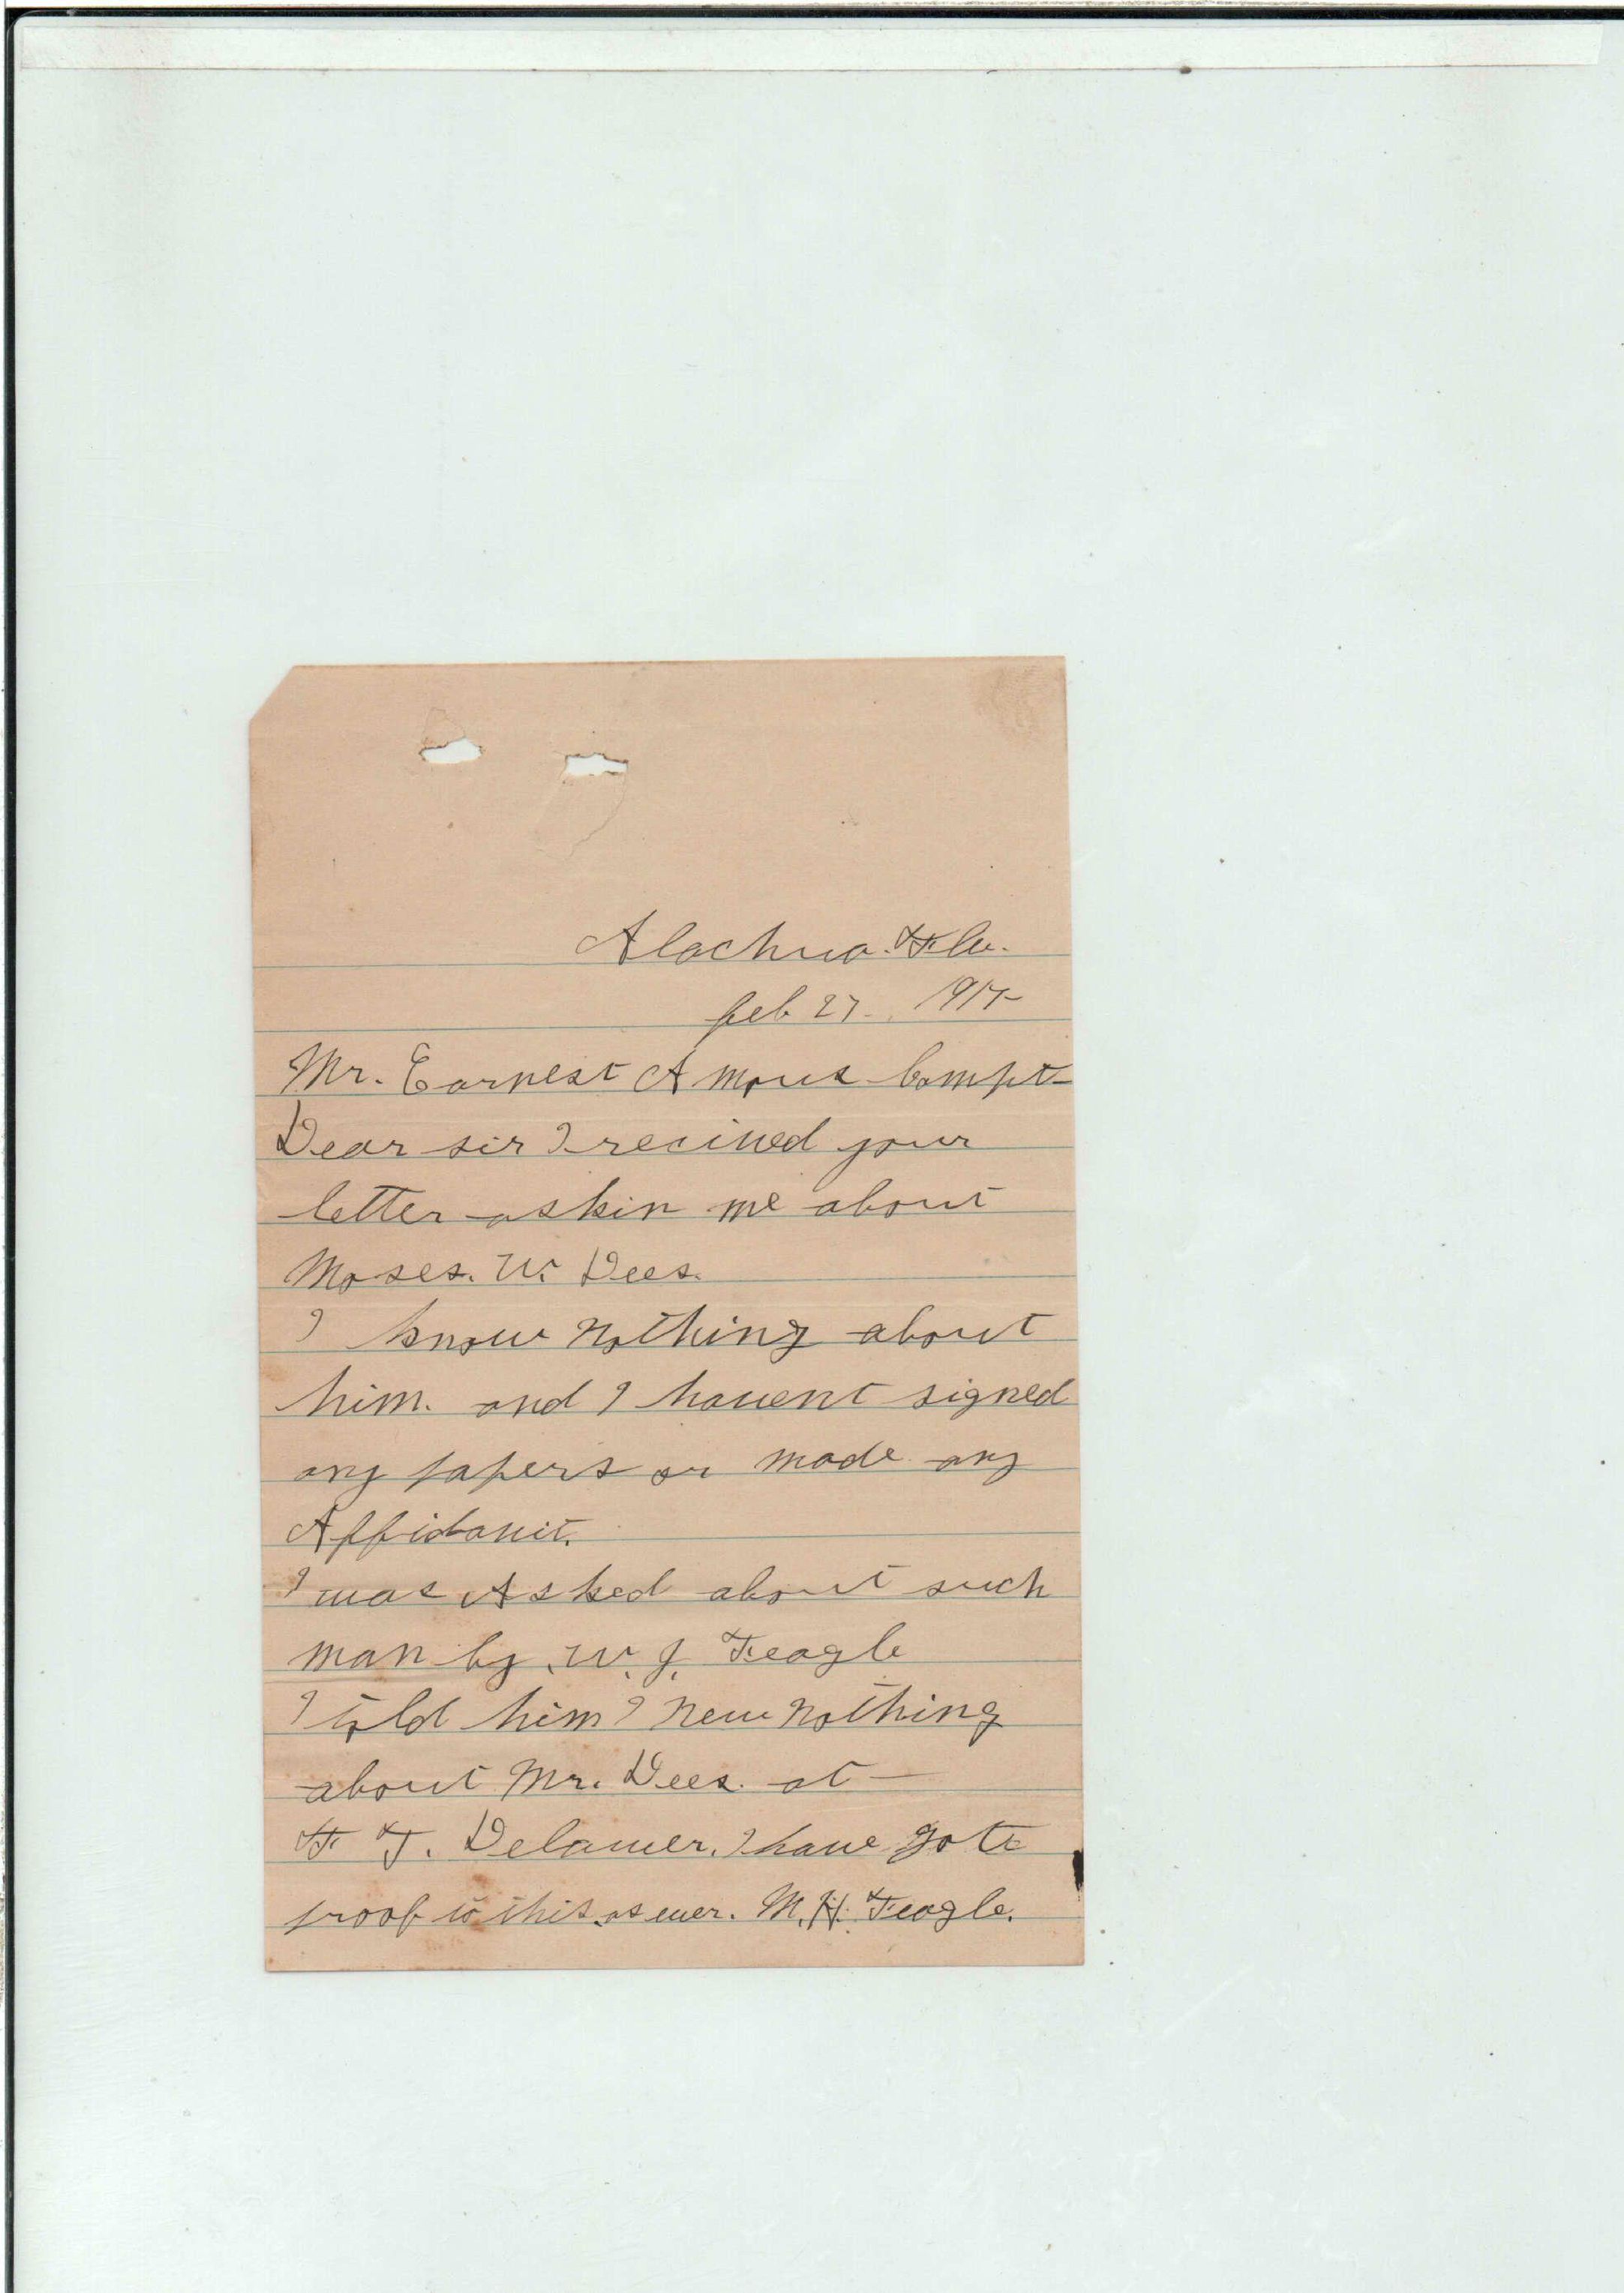 Alachua. Fla.
feb 27. 1917
Mr. Earnest Amous Compt
Dear sir I recived your
letter askin me about
Moses. W. Dees.
I know nothing about
him. and I havent signed
any papers or made any
Affidavit.
I was Asked about such
man by W. J. Feagle
I told him I new nothing
about Mr. Dees. at
F T. Delamer. I have got
proof to this. as ever. M. H. Feagle.